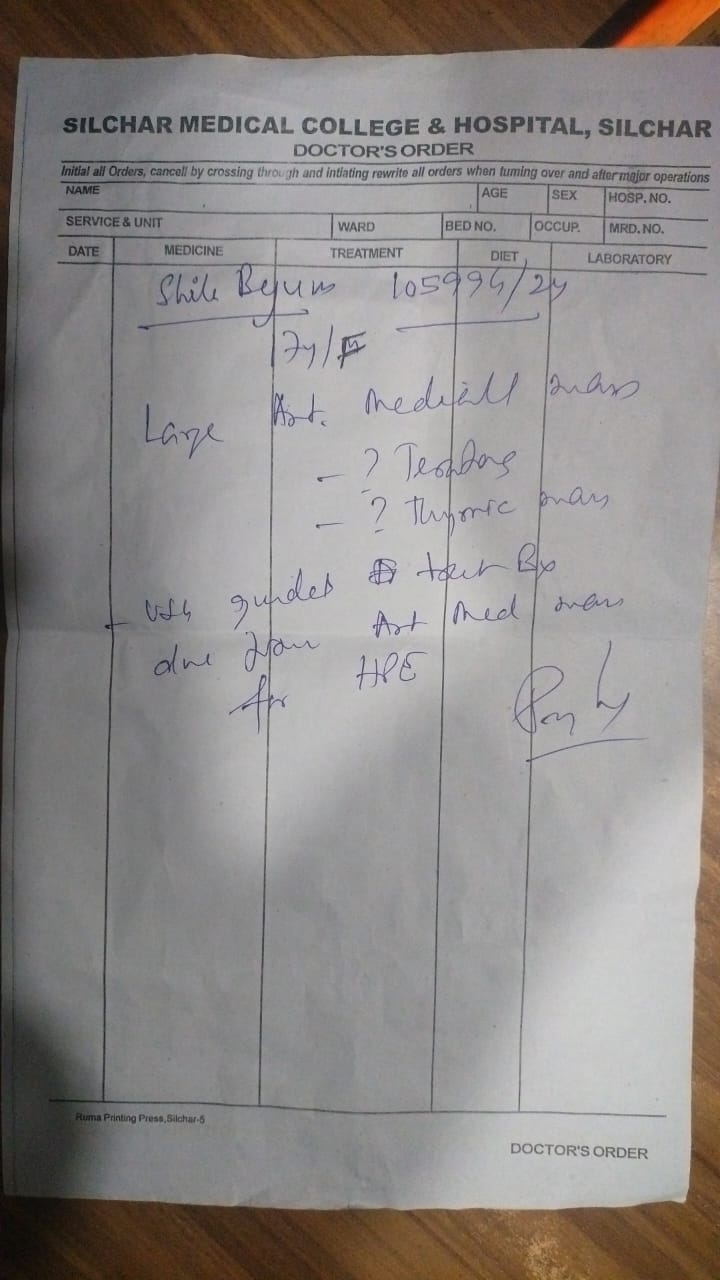 SILCHAR MEDICAL COLLEGE & HOSPITAL, SILCHAR
DOCTOR'S ORDER
Initial all Orders, cancell by crossing through and intiating rewrite all orders when turning over and after major operations
NAME AGE SEX HOSP. NO.
SERVICE & UNIT WARD BED NO. OCCUP. MRD. NO.
DATE MEDICINE TREATMENT DIET LABORATORY
Begum /24
Large Ant. mass
- ?
- ? Thymic mass
- USG guided Bx
done from Ant Med mass
for HPE
Ruma Printing Press, Silchar-5
DOCTOR'S ORDER